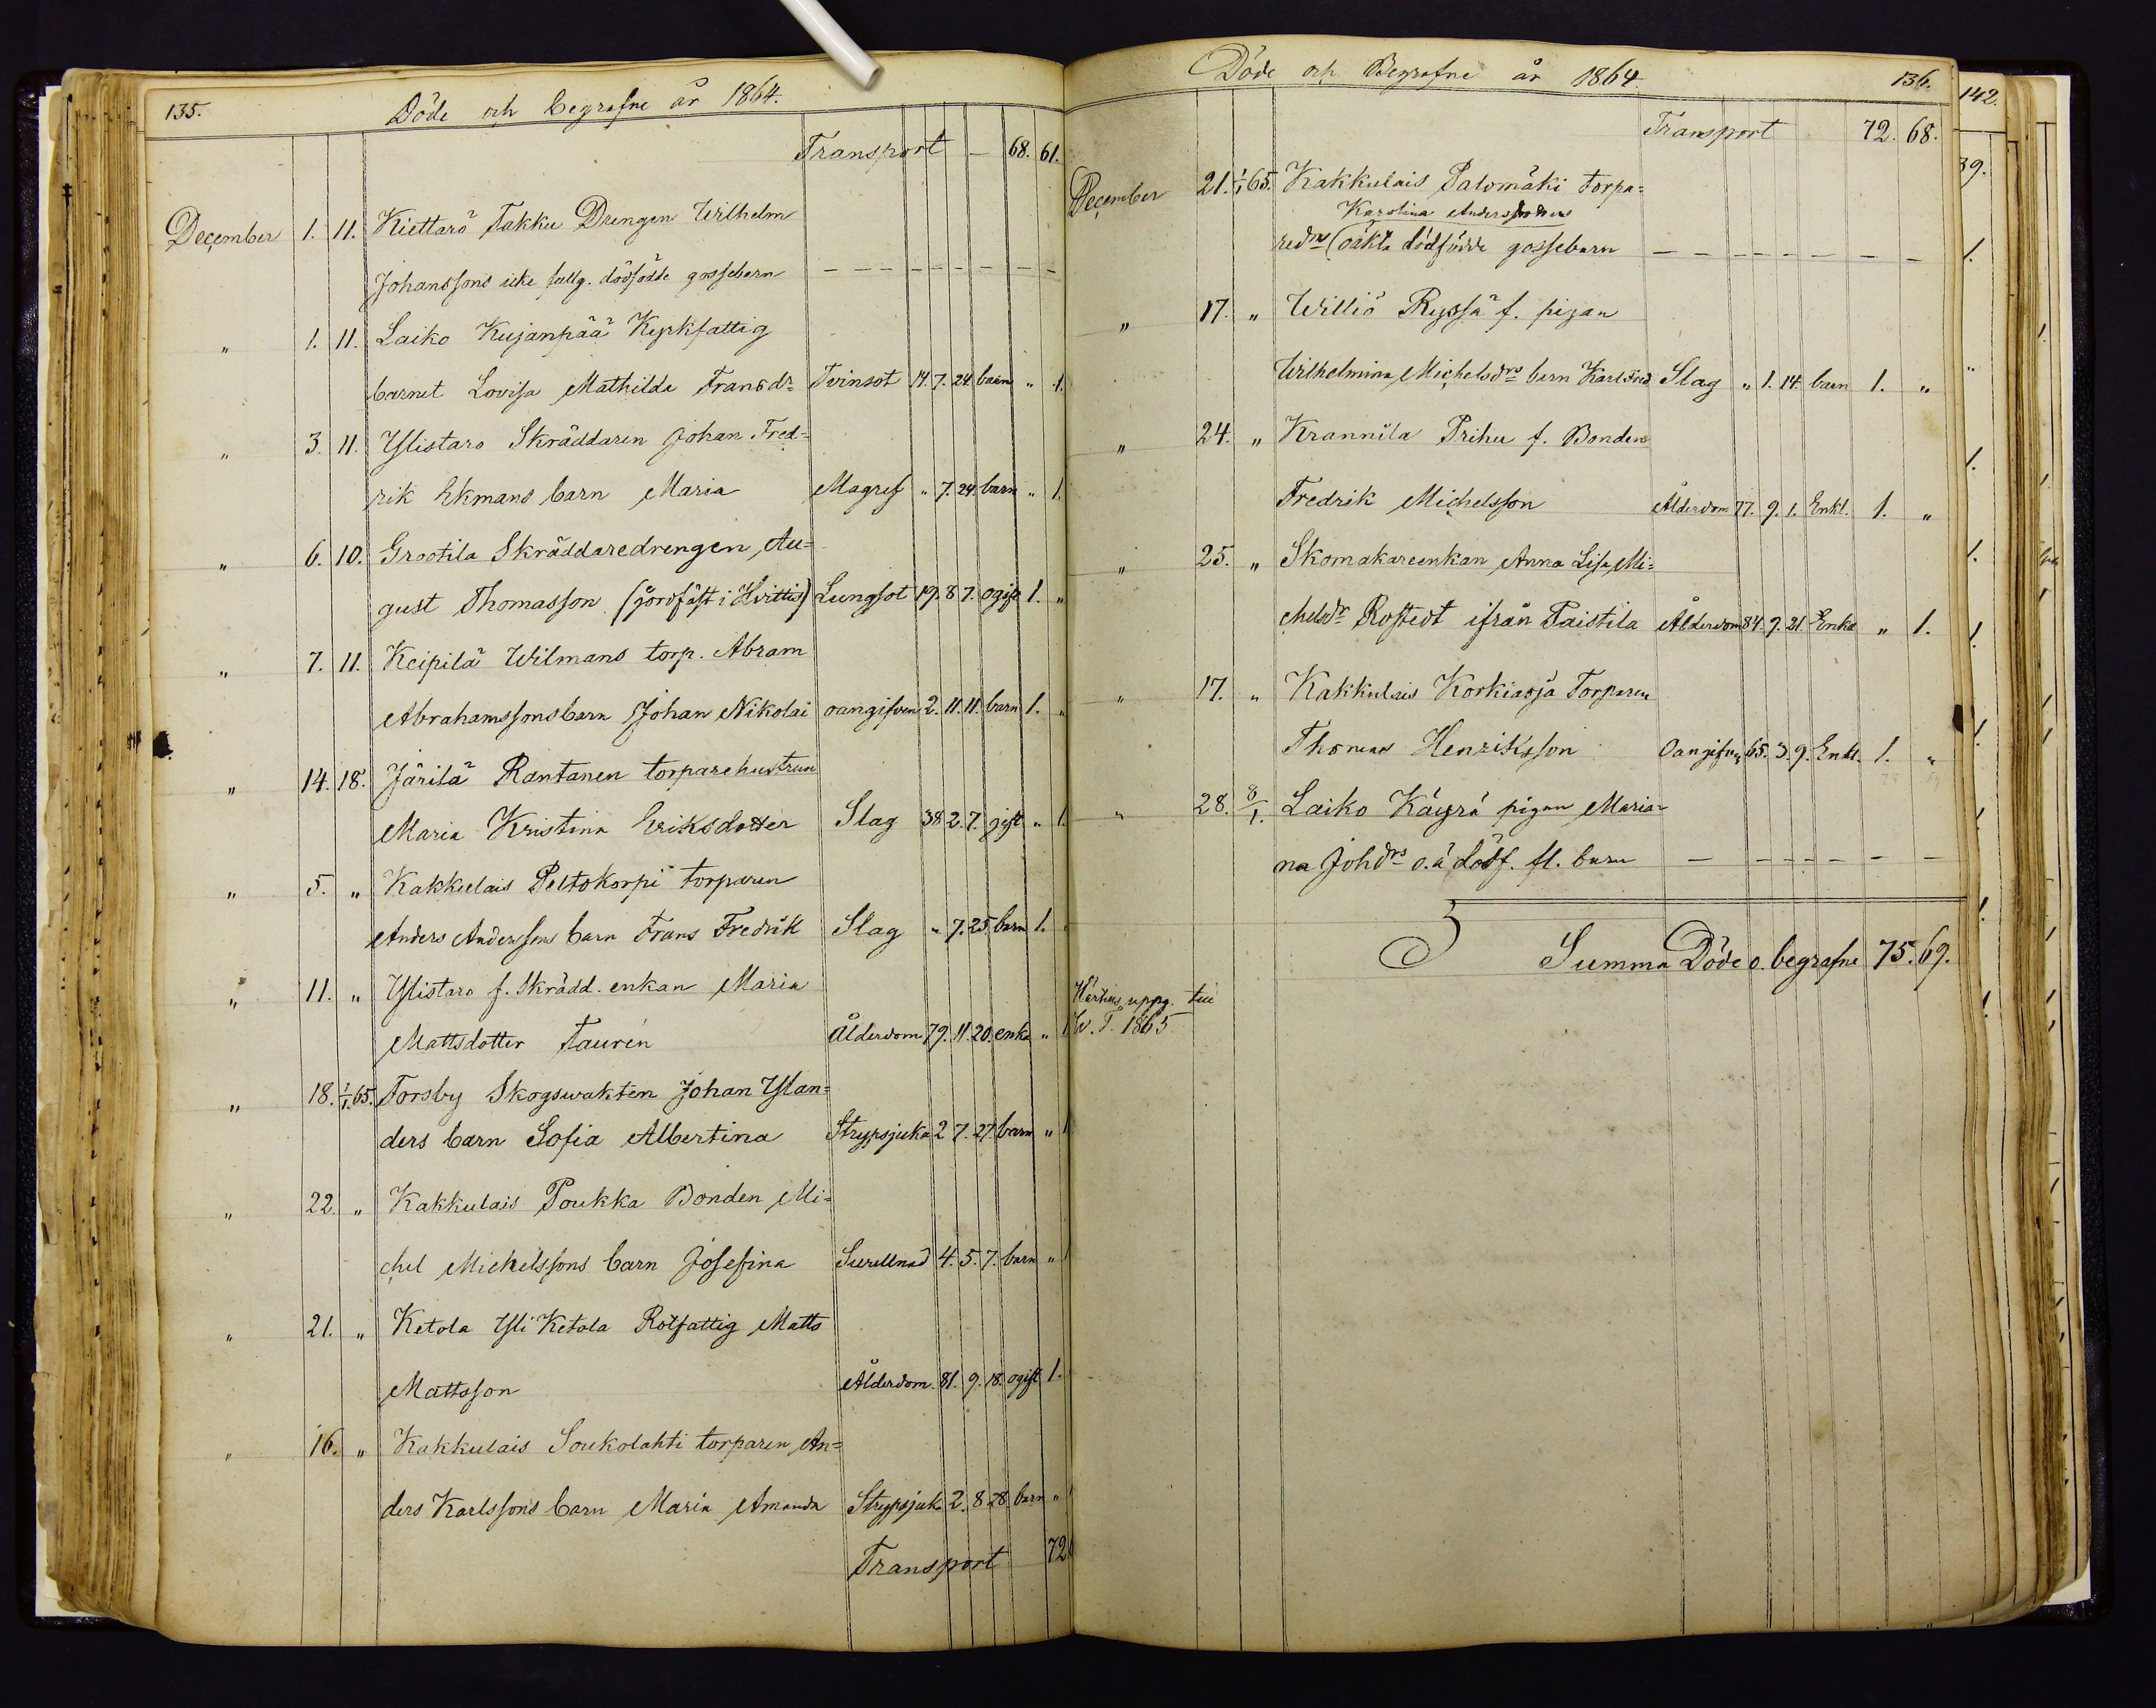 135. Döde och begrafne år 1864.
Transport — 68. 61.
December 1. 11. Kiettarö Takku Drengen Wilhelm
Johanssons icke fullg. dödfödde gossebarn — — — — — — — —
" 1. 11. Laiko Kujanpää Kyrkfattig
barnet Lovisa Mathilda Fransdr Tvinsot 14. 7. 24. barn " 1.
" 3. 11. Ylistaro Skräddaren Johan Fred=
rik Ekmans barn Maria Magref " 7. 24. barn " 1.
" 6. 10. Grootila Skräddaredrengen Au=
gust Thomasson (jordfäst i Hvittis) Lungsot 19. 8 7. ogift 1. "
" 7. 11. Keipilä Wilmans torp. Abram
Abrahamssons barn Johan Nikolai oangifven 2. 11. 11. barn 1. "
" 14. 18. Järilä Rantanen torparehustrun
Maria Kristina Eriksdotter Slag 38 2. 7. gift " 1.
" 5. " Kakkulais Peltokorpi torparen
Anders Anderssons barn Frans Fredrik Slag " 7. 25 barn 1.
" 11. " Ylistaro f. Skrädd. enkan Maria
Mattsdotter Taurén Ålderdom 79. 11. 20. enka " 1
" 18. 1/1 65. Forsby Skogswakten Johan Ylan=
ders barn Sofia Albertina Strypsjuka 2 7. 27. barn " 1
" 22. " Kakkulais Poukka Bonden Mi=
chel Michelssons barn Josefina Swullnad 4. 5. 7. barn " 1
" 21. " Ketola Yli Ketola Rotfattig Matts
Mattsson Ålderdom. 81. 9. 18. ogift 1.
" 16. " Kakkulais Soukolahti torparen An=
ders Karlssons barn Maria Amanda Strypsjuk. 2. 8 28 barn "
Transport 72
Döde och Begrafne år 1864. 136.
Transport 72. 68.
December 21. 1/1 65. Kakkulais Palomäki torpa=
Karolina Andersdotters
redrs (oäkta dödfödde gossebarn — — — — — — — —
" 17. " Williö Ryssä f. pigan
Wilhelmina Michelsdrs barn Karl Fred. Slag " 1. 14. barn 1. "
" 24. " Krannila Prihu f. Bonden
Fredrik Michelsson Ålderdom 77. 9. 1. Enkl. 1. "
" 25. " Skomakareenkan Anna Lisa Mi=
chelsdr Rostedt ifrån Taistila Ålderdom 84. 9. 21. Enka " 1.
" 17. " Kakkulais Korkiaoja Torparen
Thomas Henriksson Oangifven 65. 3. 9. Enkl. 1. "
" 28. 8/1. Laiko Käyrä pigan Maria=
na Johdrs o.ä dödf. fl. barn — — — — — —
Summa Döde o. begrafne 75. 69.
uppg. till
W. T. 1865
142.
39.